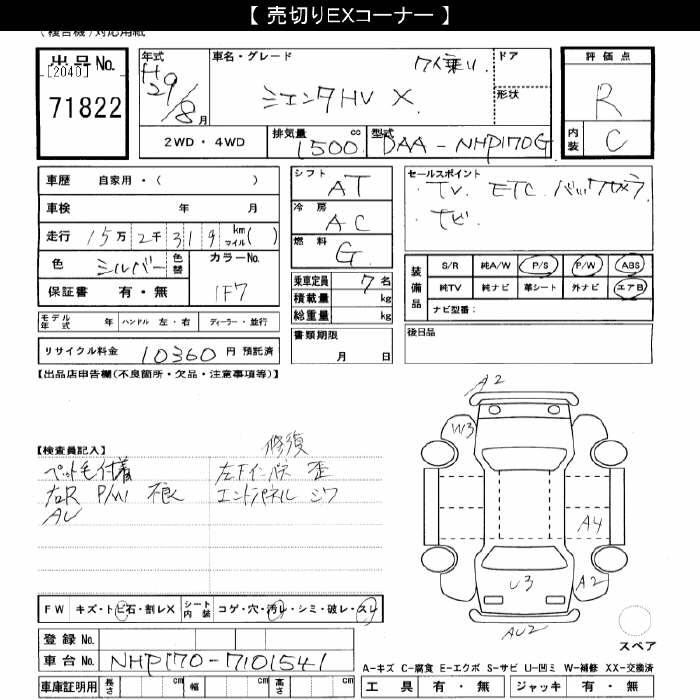 【 売切りEXコーナー 】
(複合機)対応用紙
出品 No.
[2040]
71822
年式
H29/8月
車名・グレード
7人乗り
シエンタHV X
ドア
形状
評価点
R
内装 C
2WD・4WD
排気量 1500 cc
型式 DAA-NHP170G
車歴 自家用・( )
車検 年 月
走行 15万2千319 km マイル( )
色 シルバー 色替 カラーNo. 1F7
保証書 有・無
シフト AT
冷房 AC
燃料 G
乗車定員 7名
積載量 kg
総重量 kg
セールスポイント
TV ETC バックカメラ
ナビ
装備品 S/R 純A/W P/S P/W ABS
純TV 純ナビ 革シート 外ナビ エアB
ナビ型番：
モデル年式 年 ハンドル 左・右 ディーラー・並行
書類期限 年 月 日
後日品
リサイクル料金 10360 円 預託済
【出品店申告欄(不良箇所・欠品・注意事項等)】
【検査員記入】
修復
ペット毛付着 左下インパネ 歪
右R P/W 不良 エンドパネル シワ
AU
A2
W3
A4
U3
A2
AU2
FW キズ・トビ石・割レX シート内装 コゲ・穴・汚レ・シミ・破レ・スレ
スペア
登録 No.
車台 No. NHP170-7101541
A-キズ C-腐食 E-エクボ S-サビ U-凹ミ W-補修 XX-交換済
車庫証明用 長さ cm 幅 cm 高さ cm
工具 有・無 ジャッキ 有・無